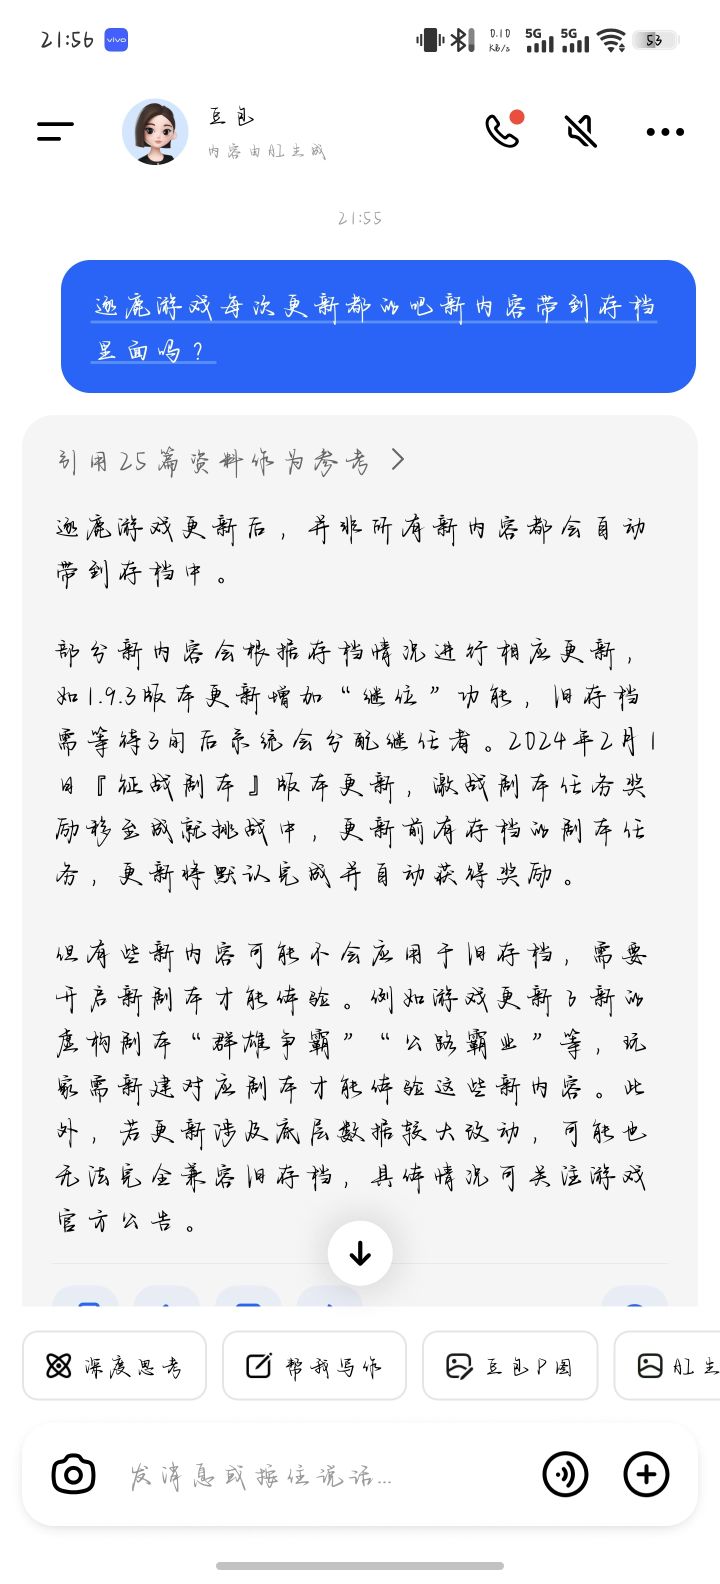 21:56 vivo 0.10 KB/s 5G 5G 53
豆包
内容由AI生成
21:55
逐鹿游戏每次更新都的吧新内容带到存档
里面吗？
引用25篇资料作为参考
逐鹿游戏更新后，并非所有新内容都会自动
带到存档中。
部分新内容会根据存档情况进行相应更新，
如1.9.3版本更新增加“继位”功能，旧存档
需等待3旬后系统会分配继任者。2024年2月1
日『征战剧本』版本更新，激战剧本任务奖
励移至成就挑战中，更新前有存档的剧本任
务，更新将默认完成并自动获得奖励。
但有些新内容可能不会应用于旧存档，需要
开启新剧本才能体验。例如游戏更新了新的
虚构剧本“群雄争霸”“公路霸业”等，玩
家需新建对应剧本才能体验这些新内容。此
外，若更新涉及底层数据较大改动，可能也
无法完全兼容旧存档，具体情况可关注游戏
官方公告。
深度思考 帮我写作 豆包P图 AI生
发消息或按住说话...